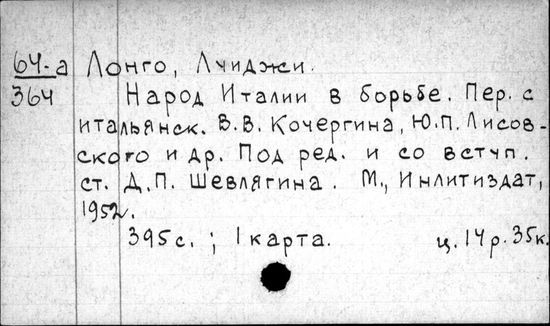 64-а Лонго, Луиджи.
364 Народ Италии в борьбе. Пер. с
итальянск. В.В. Кочергина, Ю.П. Лисов-
ского и др. Под ред. и со вступ.
ст. Д.П. Шевлягина. М., Инлитиздат,
1952.
395 с. ; 1 карта. ц. 14 р. 35 к.